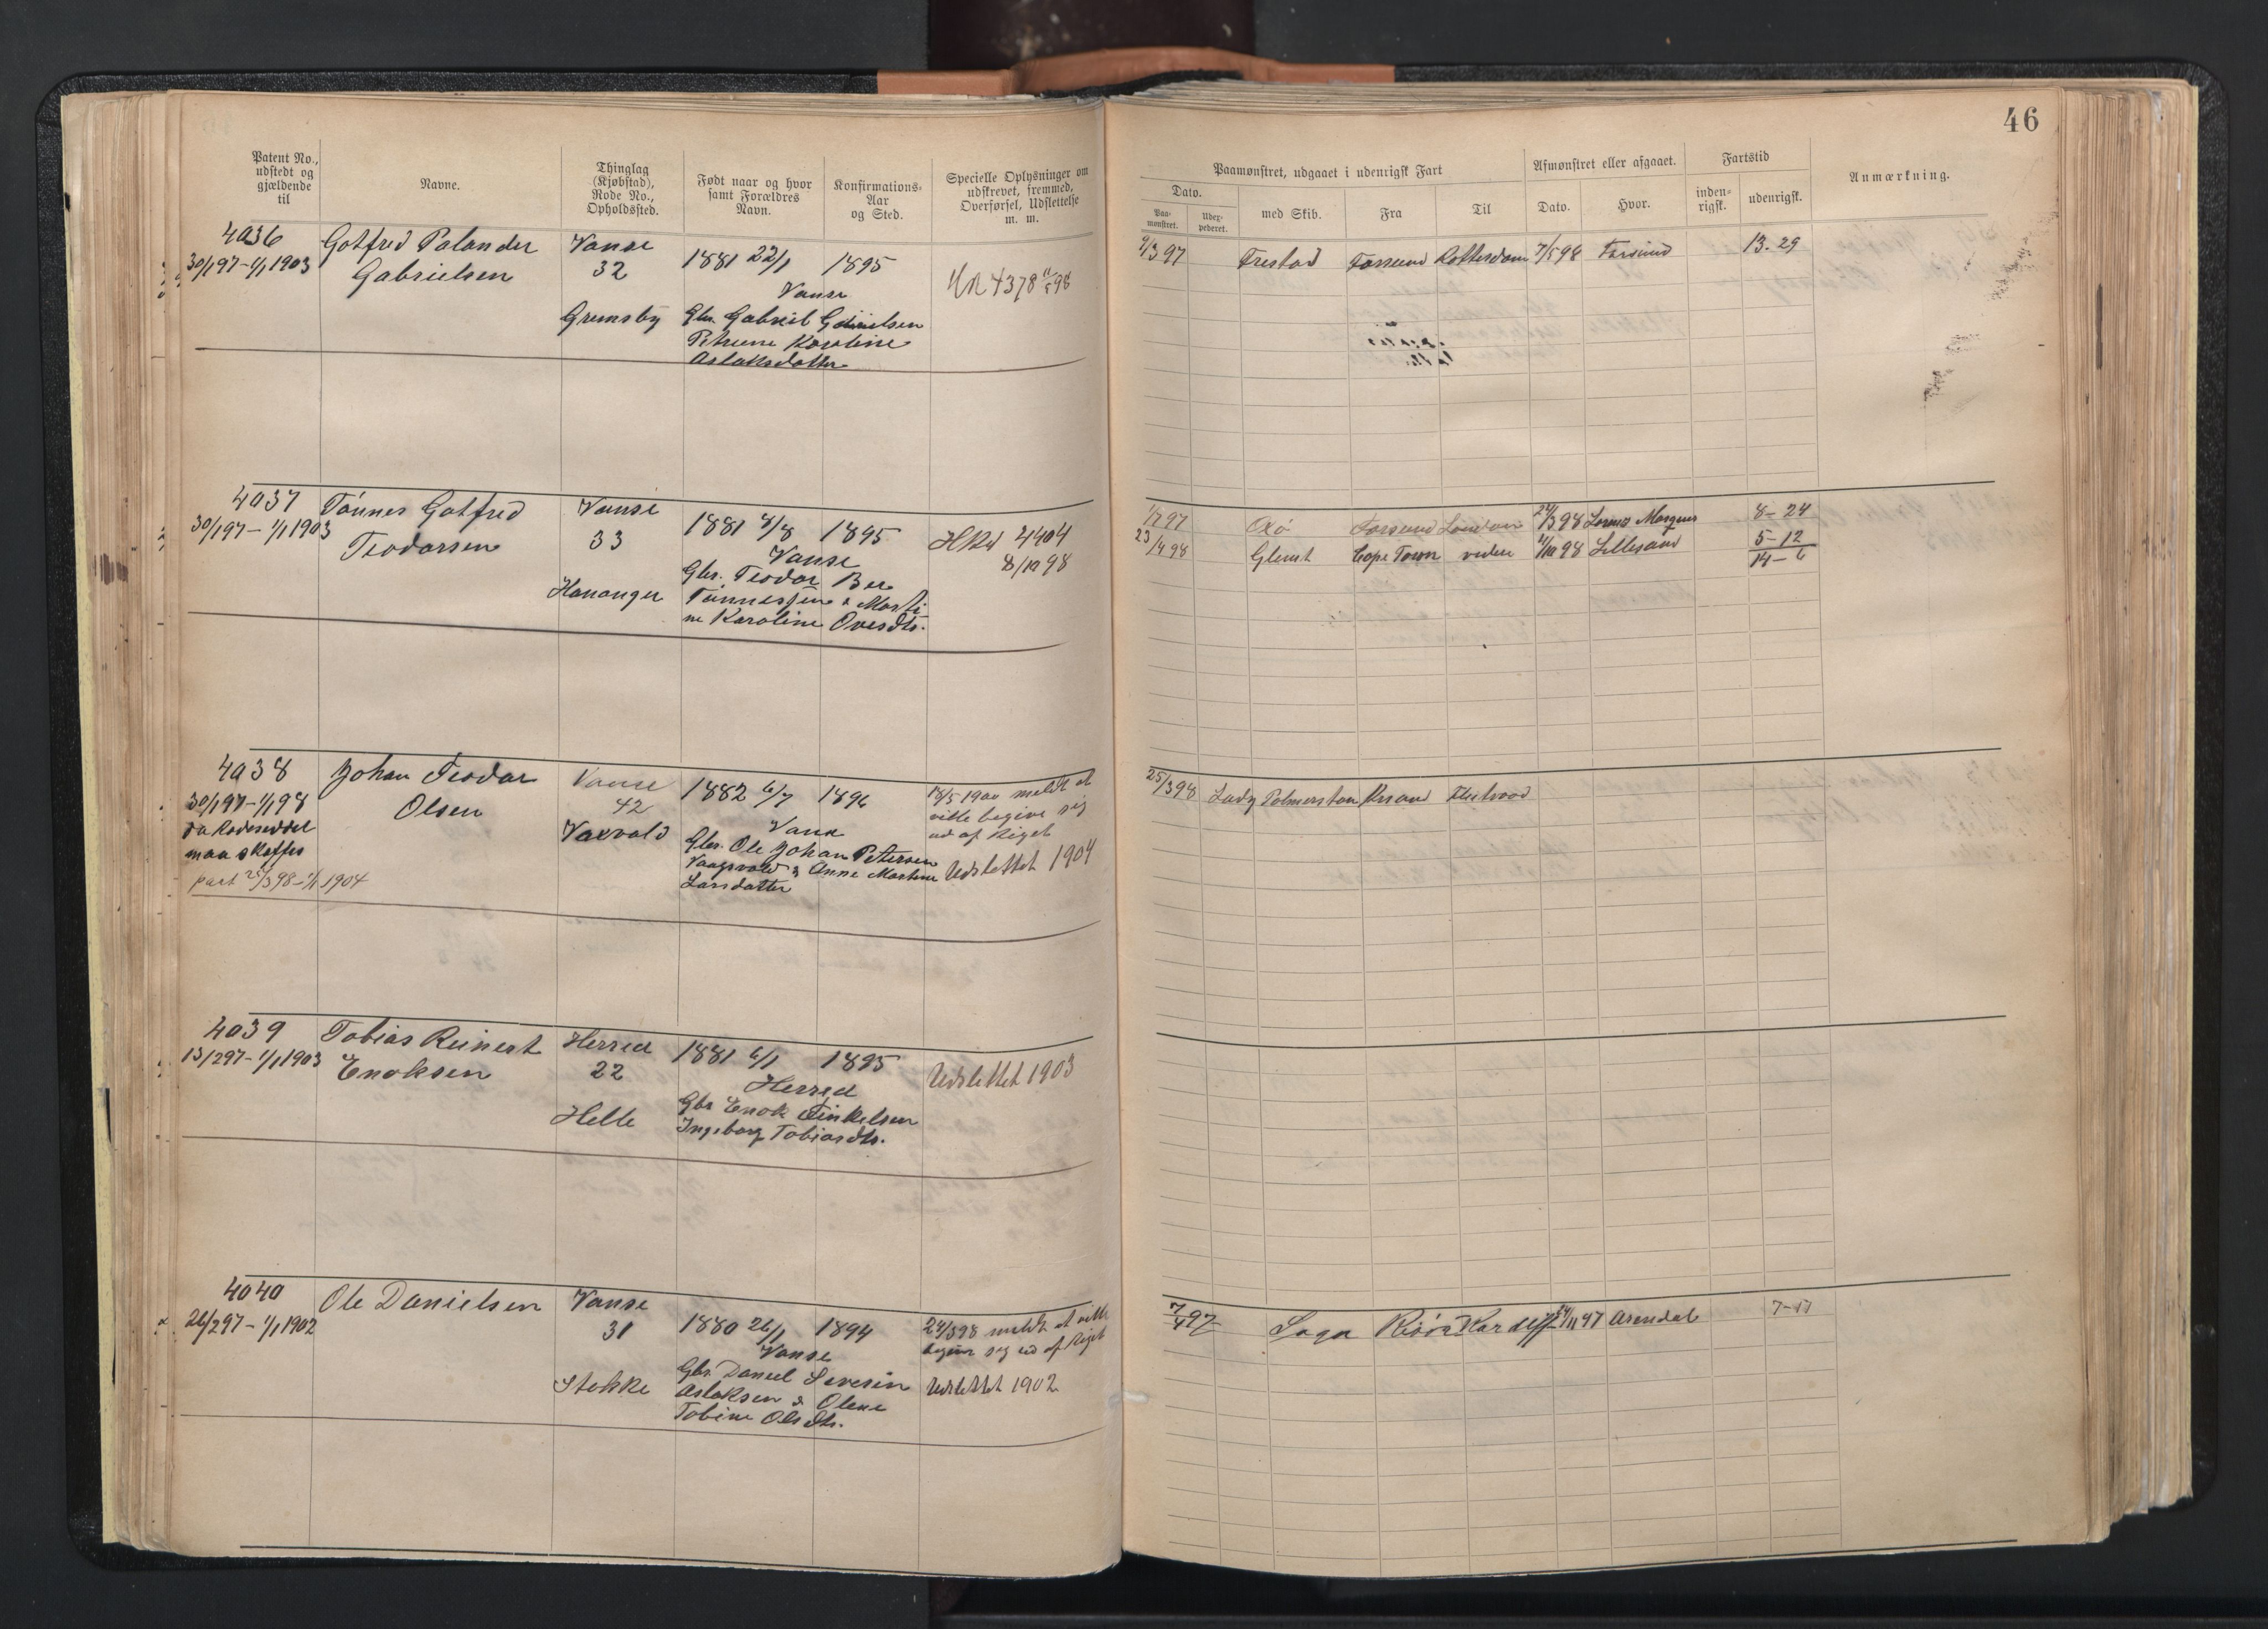 46
Patent No.,
udstedt og
gjældende
til
Navne.
Thinglag
(Kjøbstad),
Rode No.,
Opholdssted.
Født naar og hvor
samt Forældres
Navn.
Konfirmations-
Aar
og Sted.
Specielle Oplysninger om
udskrevet, fremmed,
Overførsel, Udslettelse
m. m.
Paamønstret, udgaaet i udenrigsk Fart
Dato.
Paa-
mønstret.
Uder-
pederet.
med Skib.
Fra
Til
Afmønstret eller afgaaet.
Dato.
Hvor.
Fartstid
inden-
rigsk.
udenrigsk.
Anmærkning.
4036
30/1 97 - 1/1 1903
Gotfred Palander
Gabrielsen
Vanse
32
Grumsby
1881 22/1
1895
Vanse
Gbr. Gabriel
Karoline
Aslaksdatter
4378 11/5 98
9/3 97
Trestad
Farsund
Rotterdam
7/5 98
Farsund
13. 29
4037
30/1 97 - 1/1 1903
Tønnes Gotfred
Teodorsen
Vanse
33
Hananger
1881 8/8
1895
Vanse
Gbr. Teodor Ber
Tønnessen & Marti
ne Karoline Ovesdtr.
4404
8/10 98
1/7 97
Oxö
Farsund
London
24/3 98
Lorenzo Marques
8 - 24
23/4 98
Glimt
Cape Town
videre
11/10 98
Lillesand
5 - 12
14 - 6
4038
30/1 97 - 1/1 98
da Rodeseddel
maa skaffes
part 25/3 98 - 1/1 1904
Johan Teodor
Olsen
Vanse
42
Vaxvold
1882 6/7
1896
Vanse
Gbr. Ole Johan Petersen
Vaagsvold & Anne Martine
Larsdatter
18/5 1900 meldt at
ville begive sig
ud af Riget
Udslettet 1904
25/3 98
Lady Palmerston
Krsand
Fleetwood
4039
13/2 97 - 1/1 1903
Tobias Reinert
Enoksen
Herred
22
Helle
1881 6/1
1895
Herred
Gbr Enok Finkelsen
Ingeborg Tobiasdtr.
Udslettet 1903
4040
26/2 97 - 1/1 1902
Ole Danielsen
Vanse
31
Stokke
1880 26/1
1894
Vanse
Gbr. Daniel Severin
Aslaksen & Olene
Tobine Olsdtr.
24/3 98 meldt at ville
begive sig ud af Riget
Udslettet 1902
7/4 97
Saga
Risør
Kardiff
24/11 97
Arendal
7 - 17